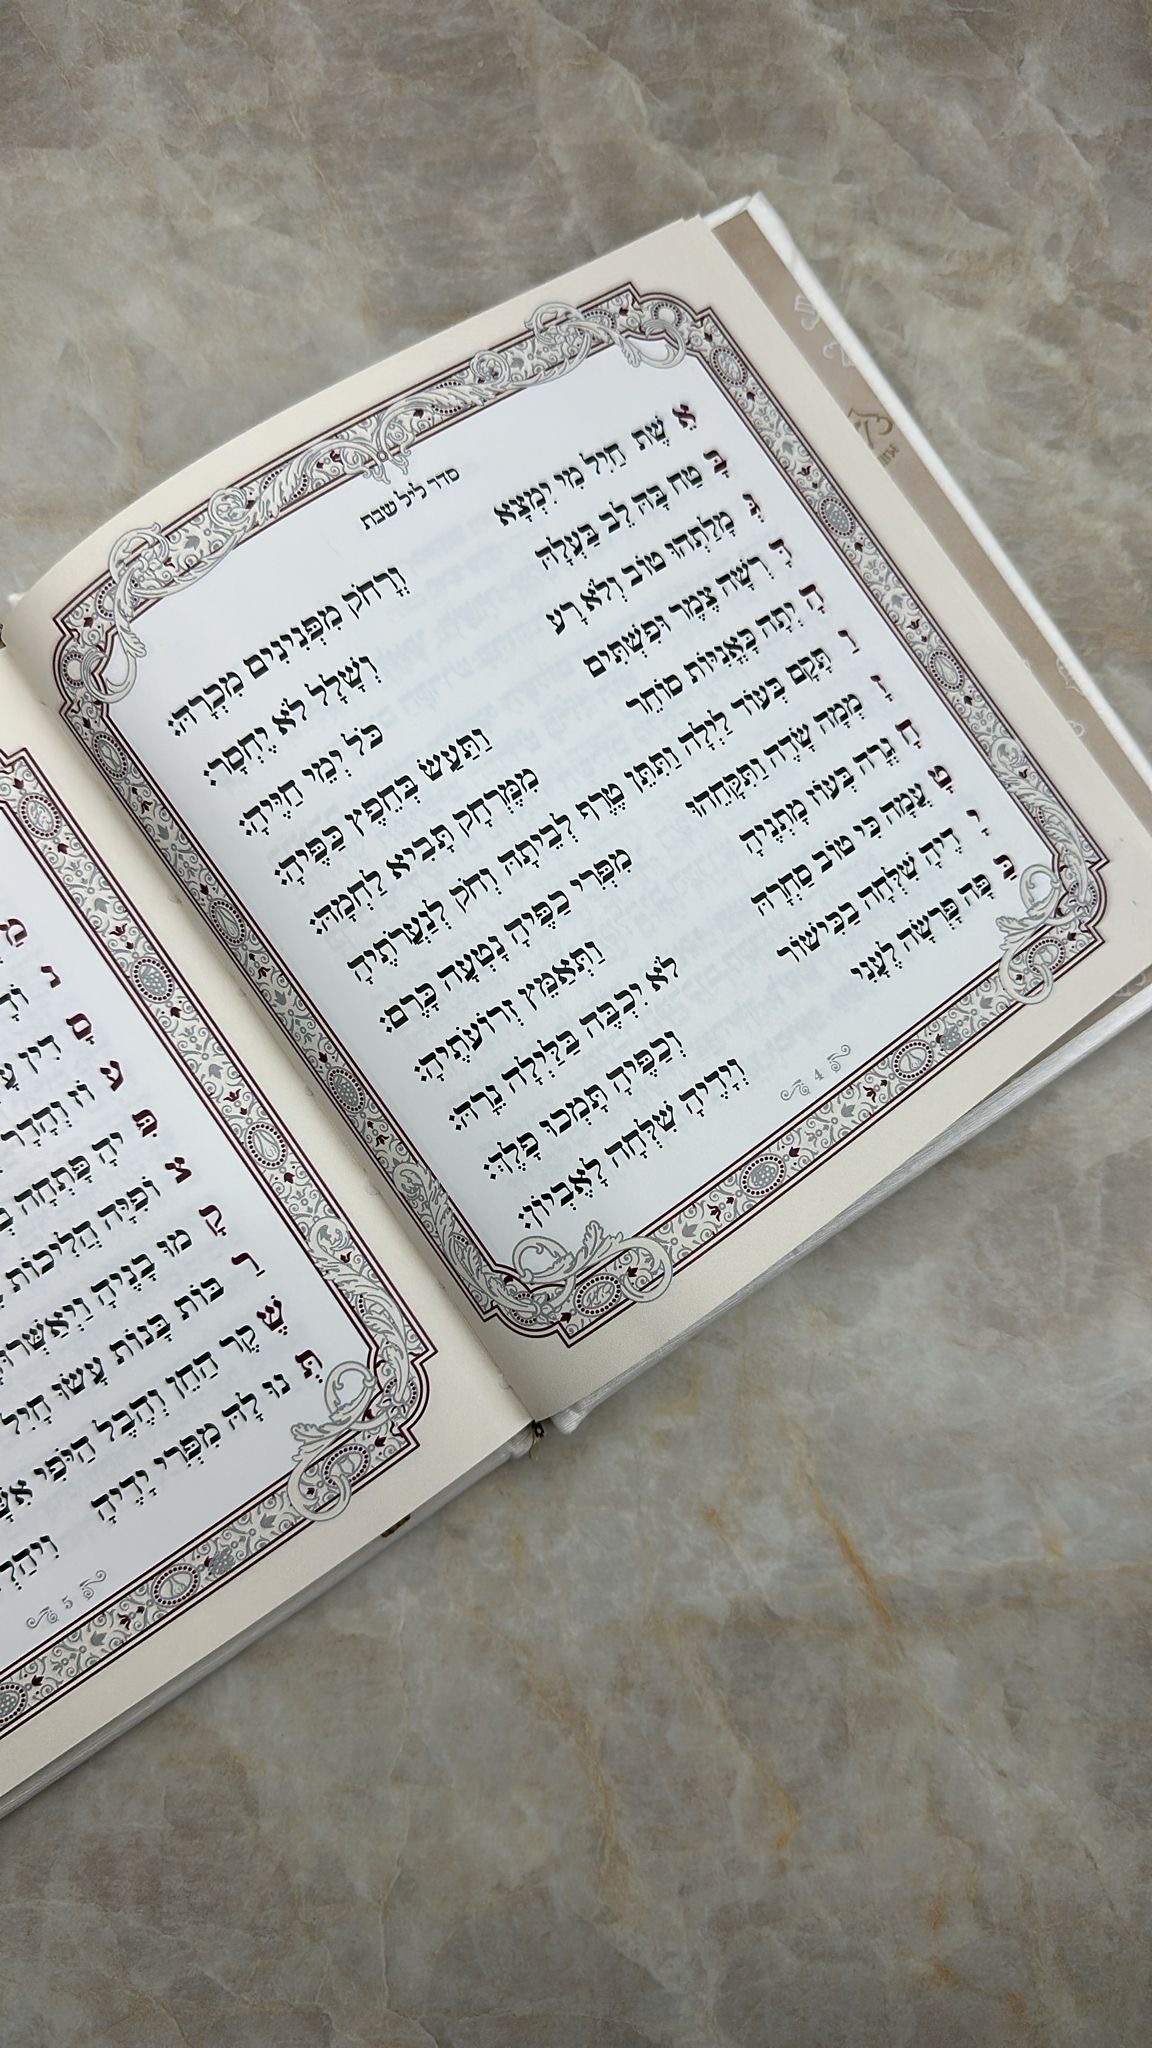 סדר ליל שבת
אֵשֶׁת חַיִל מִי יִמְצָא וְרָחֹק מִפְּנִינִים מִכְרָהּ:
בָּטַח בָּהּ לֵב בַּעְלָהּ וְשָׁלָל לֹא יֶחְסָר:
גְּמָלַתְהוּ טוֹב וְלֹא רָע כֹּל יְמֵי חַיֶּיהָ:
דָּרְשָׁה צֶמֶר וּפִשְׁתִּים וַתַּעַשׂ בְּחֵפֶץ כַּפֶּיהָ:
הָיְתָה כָּאֳנִיּוֹת סוֹחֵר מִמֶּרְחָק תָּבִיא לַחְמָהּ:
וַתָּקָם בְּעוֹד לַיְלָה וַתִּתֵּן טֶרֶף לְבֵיתָהּ וְחֹק לְנַעֲרֹתֶיהָ
זָמְמָה שָׂדֶה וַתִּקָּחֵהוּ מִפְּרִי כַפֶּיהָ נָטְעָה כָּרֶם:
חָגְרָה בְעוֹז מָתְנֶיהָ וַתְּאַמֵּץ זְרוֹעֹתֶיהָ:
טָעֲמָה כִּי טוֹב סַחְרָהּ לֹא יִכְבֶּה בַּלַּיְלָה נֵרָהּ:
יָדֶיהָ שִׁלְּחָה בַכִּישׁוֹר וְכַפֶּיהָ תָּמְכוּ פָלֶךְ:
כַּפָּהּ פָּרְשָׂה לֶעָנִי וְיָדֶיהָ שִׁלְּחָה לָאֶבְיוֹן:
4
עֹז וְהָדָר
פִּיהָ פָּתְחָה
צוֹפִיָּה הֲלִיכוֹת
קָמוּ בָנֶיהָ וַיְאַשְּׁרוּ
רַבּוֹת בָּנוֹת עָשׂוּ חָיִל
שֶׁקֶר הַחֵן וְהֶבֶל הַיֹּפִי
תְּנוּ לָהּ מִפְּרִי יָדֶיהָ
5